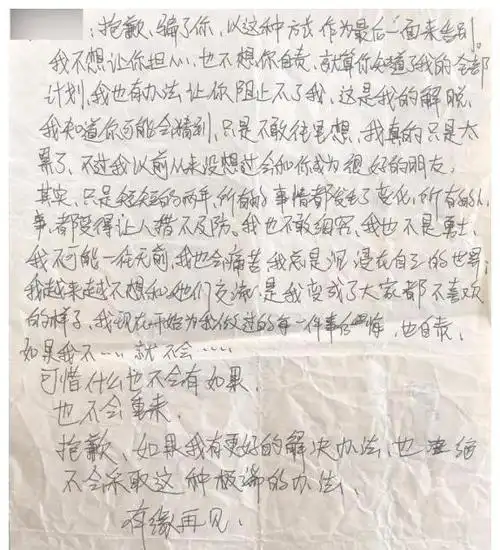 ：抱歉、骗了你，以这种方式作为最后一面来告别。
我不想让你担心，也不想你自责，就算你知道了我的全部
计划，我也有办法让你阻止不了我，这是我的解脱，
我知道你可能会猜到，只是不敢往里想，我真的只是太
累了、不过我以前从来没想过会和你成为很好的朋友，
其实，只是短短的两年，所有的事情都发生了变化，所有的人
事，都变得让人措不及防。我也不敢细究，我也不是勇士，
我不可能一往无前，我也会痛苦，我总是沉浸在自己的世界；
我越来越不想和她们交流，是我变成了大家都不喜欢
的样子，我现在开始为我做过的每一件事后悔，也自责。
如果我不……就不会……
可惜什么也不会有如果，
也不会重来，
抱歉、如果我有更好的解决办法，也
不会采取这种极端的办法、
有缘再见。